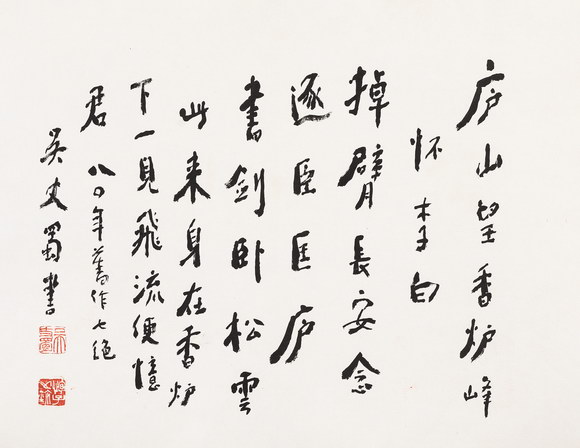 庐山望香炉峰
怀李白
掉臂長安念
逐臣匡庐
書剑卧松雲
此来身在香炉
下一見飛流便憶
君 八〇年舊作七绝
吴丈蜀書